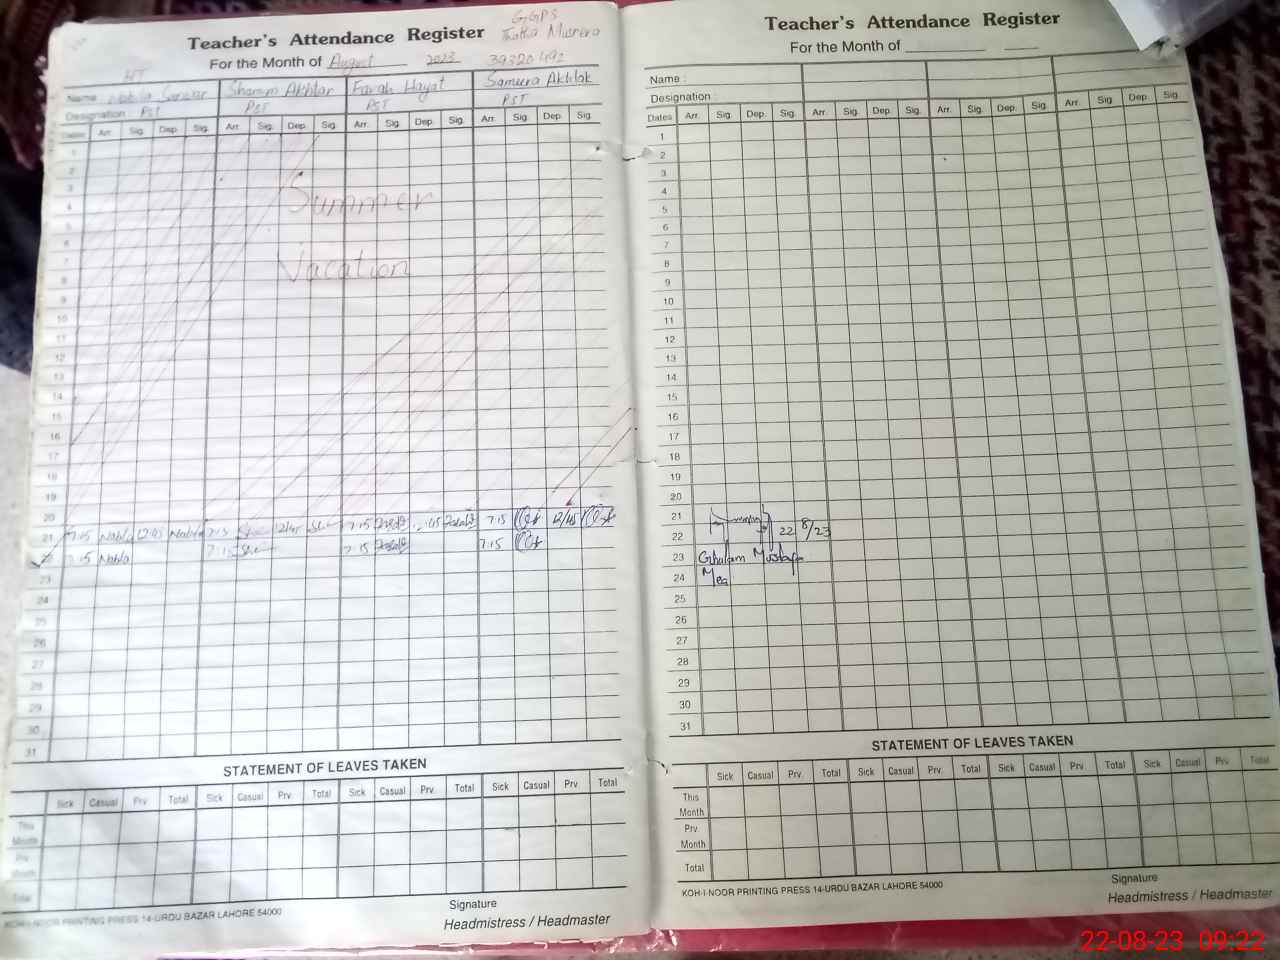 GGPS
Teacher's Attendance Register
For the Month of August 2023 39320492
HT
Name : Nabila Sarwar Shamim Akhtar Farah Hayat Samura Akhlak
Designation : PST PST PST PST
Dates Arr. Sig. Dep. Sig. Arr. Sig. Dep. Sig. Arr. Sig. Dep. Sig. Arr. Sig. Dep. Sig.
1
2
3
4
Summer
5
6
7
Vacation
8
9
10
11
12
13
14
15
16
17
18
19
20
21 7.15 Nabla Nabla 7.15 12/45 7.15 7.15 12/45
22 7.15 Nabla 7:15 7.15 7.15
23
24
25
26
27
28
29
30
31
STATEMENT OF LEAVES TAKEN
Sick Casual Prv. Total Sick Casual Prv. Total Sick Casual Prv. Total Sick Casual Prv Total
This
Month
Prv.
Month
Total
KOH-I-NOOR PRINTING PRESS 14-URDU BAZAR LAHORE 54000
Signature
Headmistress / Headmaster
Teacher's Attendance Register
For the Month of
Name :
Designation :
Dates Arr. Sig. Dep. Sig. Arr. Sig. Dep. Sig. Arr. Sig. Dep. Sig. Arr. Sig. Dep. Sig.
1
2
3
4
5
6
7
8
9
10
11
12
13
14
15
16
17
18
19
20
21
22 22 8/23
23 Ghulam Mustafa
24 Mea
25
26
27
28
29
30
31
STATEMENT OF LEAVES TAKEN
Sick Casual Prv. Total Sick Casual Prv. Total Sick Casual Prv. Total Sick Casual Prv. Total
This
Month
Prv.
Month
Total
KOH-I-NOOR PRINTING PRESS 14-URDU BAZAR LAHORE 54000
Signature
Headmistress / Headmaster
22-08-23 09:22